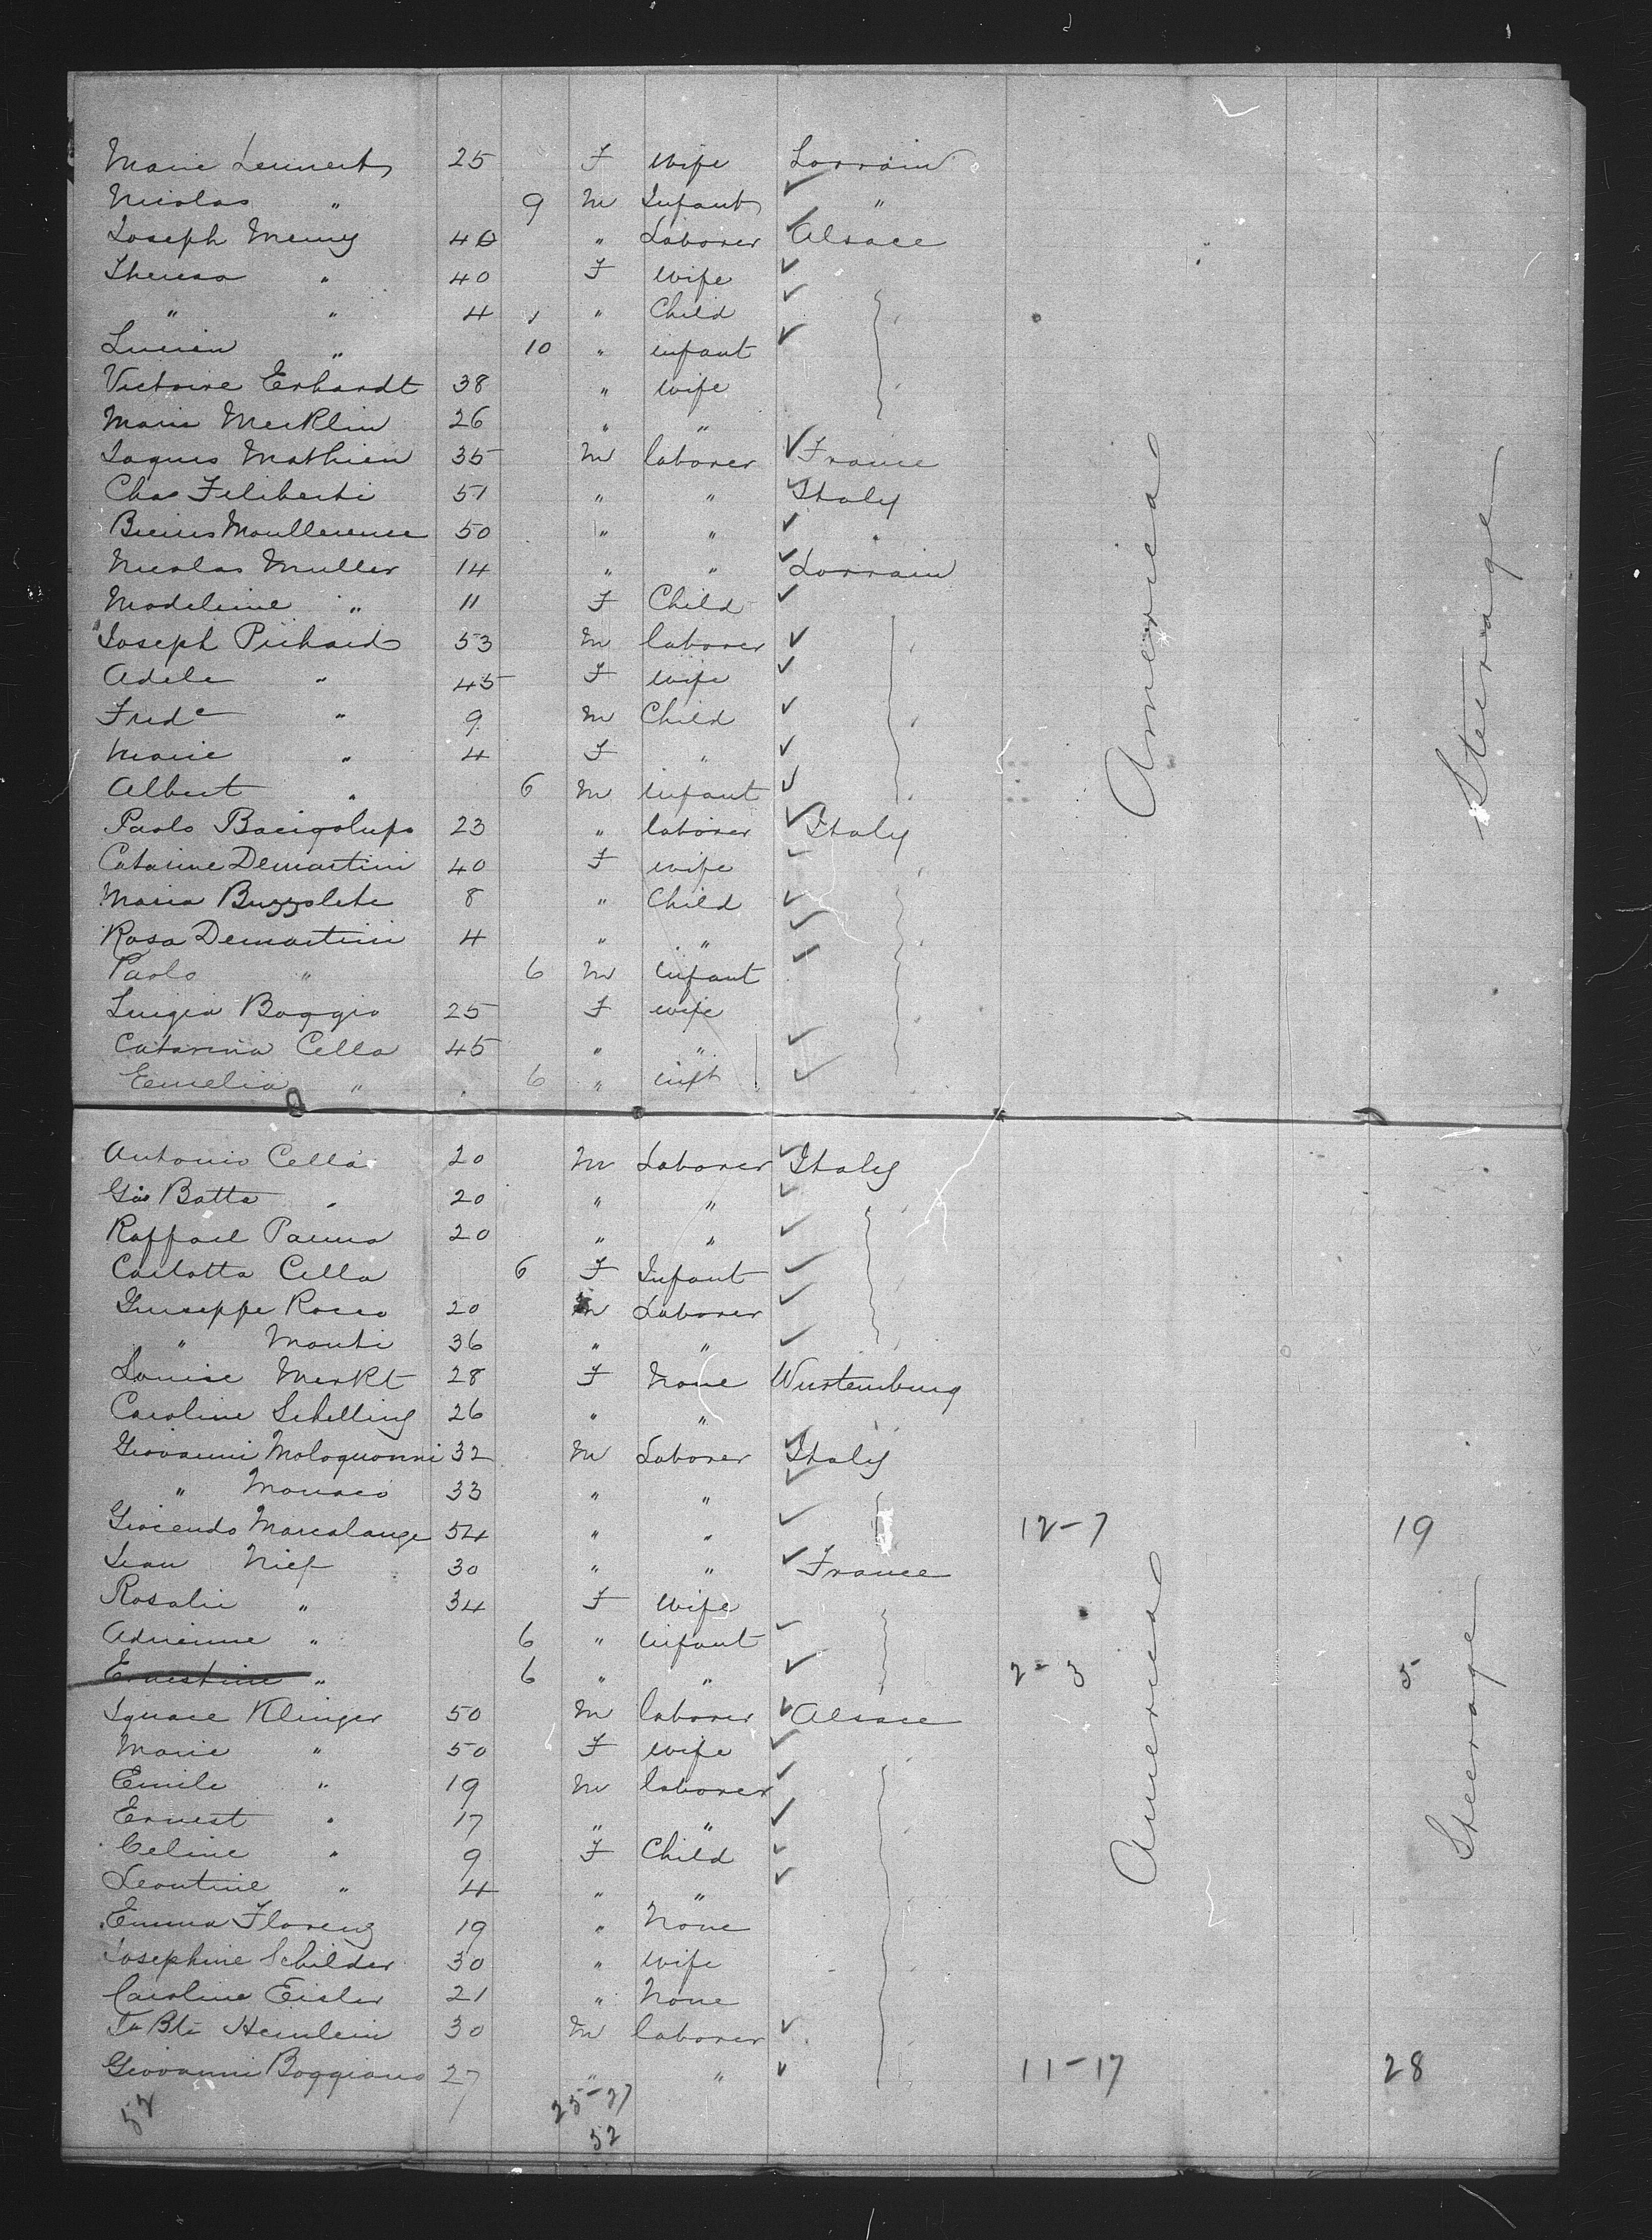 Marie Lennert 25 F wife Lorrain
Nicolas " 9 M Infant "
Joseph Menny 40 " Laborer Alsace
Theresa " 40 F wife
" " 4 1 " Child
Lucien " 10 " infant
Victoire Erhardt 38 " wife
Marie Merklin 26 " "
Jaques Mathieu 35 M laborer France
Chas Filiberti 51 " " Italy
50 " "
Nicolas Muller 14 " " Lorrain
Madeleine " 11 F Child
Joseph Pichard 53 M laborer
Adele " 45 F wife
Fredc " 9 M Child
Marie " 4 F "
Albert " 6 M infant
Paolo Bacigolupo 23 " laborer Italy
Catarine Demartini 40 F wife
Maria Buzzolete 8 " Child
Rosa Demartini 4 " "
Paolo " 6 M infant
Luigia Boggio 25 F wife
Catarina Cella 45 " "
Emelia " 6 " inft
America
Steerage
Antonio Cella 20 M Laborer Italy
Gio Batta " 20 " "
Raffael 20 " "
Carlotta Cella 6 F Infant
Giuseppe Rocco 20 M Laborer
" Monti 36 " "
Louise Merkt 28 F None Wurtemburg
Caroline Schelling 26 " "
Giovanni Mologuonni 32 M Laborer Italy
" Monaco 33 " "
Giocendo Marcalange 54 " " 12-7 19
Jean Nief 30 " " France
Rosalie " 34 F Wife
Adrienne " 6 " infant
Ernestine " 6 " " 2-3 5
Ignace Klinger 50 M laborer Alsace
Marie " 50 F wife
Emile " 19 M laborer
Ernest " 17 " "
Celine " 9 F Child
Leontine " 4 " "
Emma Florenz 19 " None
Josephine Schilder 30 " wife
Caroline Eisler 21 " None
Jn Bte Hemlein 30 M laborer
Giovanni Boggiano 27 " " 11-17 28
52 25-27
52
America
Steerage